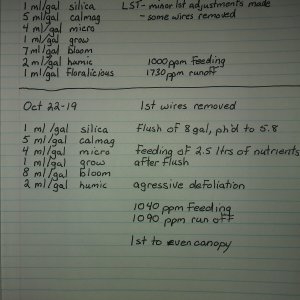 1 ml/gal silica LST - minor lst adjustments made
5 ml/gal calmag - some wires removed
4 ml/gal micro
1 ml/gal grow
7 ml/gal bloom
2 ml/gal humic 1000 ppm feeding
1 ml/gal floralicious 1730 ppm runoff
Oct 22-19 lst wires removed
1 ml/gal silica flush of 8 gal, ph'd to 5.8
5 ml/gal calmag
4 ml/gal micro feeding of 2.5 ltrs of nutrients
1 ml/gal grow after flush
8 ml/gal bloom
2 ml/gal humic agressive defoliation
1040 ppm feeding
1090 ppm run off
lst to even canopy